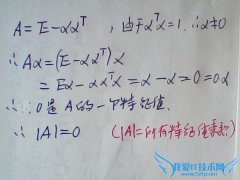 A=E-αα^T ，由于α^Tα=1. ∴α≠0
∴Aα=(E-αα^T)α
=Eα-αα^Tα=α-α=0=0α
∴0是A的一个特征值.
∴|A|=0 (|A|=所有特征值乘积)
我爱IT技术网
www.52ij.com